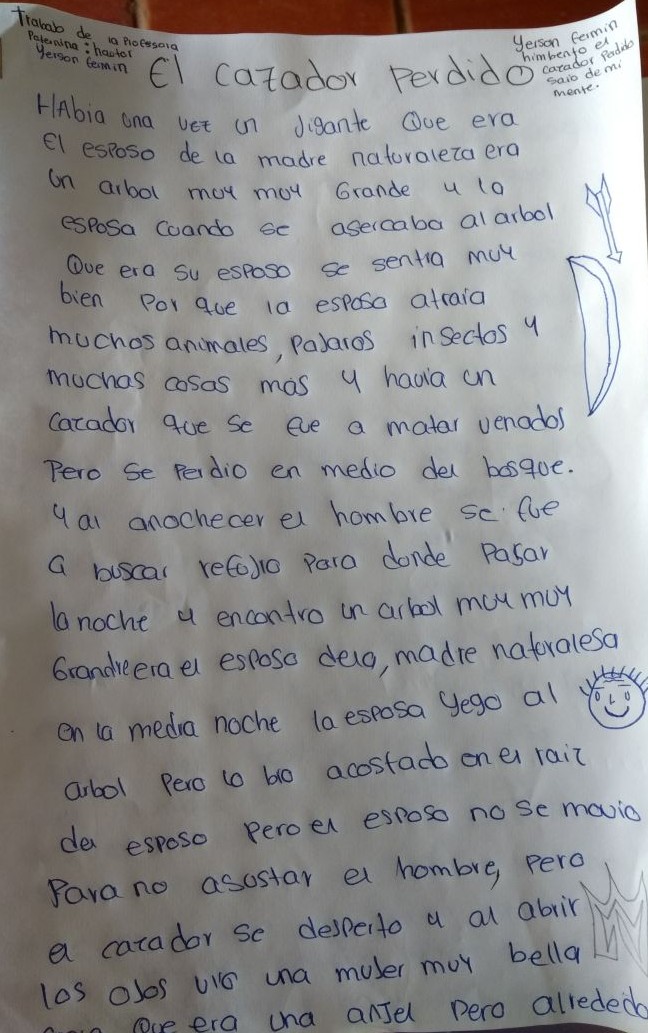 Trabab de la Professora
Paternina : haotor
Yerson fermin
Yerson fermin
himbento el
cazador Perddo
saio de mi
mente.
El cazador Perdido
HAbia una vez un Jigante Que era
El esposo de la madre naturaleza era
Un arbol moy moy Grande y la
esposa cuando se asercaba al arbol
Que era su esposo se sentia muy
bien Por que la esposa atraia
muchos animales, Pajaros insectos y
muchas cosas mas y havia un
Cazador que se fue a matar venados
Pero se Perdio en medio del bosque.
y al anochecer el hombre se fue
a buscar refojio Para donde Pasar
la noche y encontro un arbol muy muy
Grandre era el esposo dela, madre naturalesa
en la media noche la esposa yego al
arbol Pero lo bio acostado en el raiz
del esposo Pero el esposo no se movio
Para no asustar el hombre, Pero
el cazador se desperto y al abrir
los ojos vio una mujer muy bella
Que era una anjel Pero alrededo